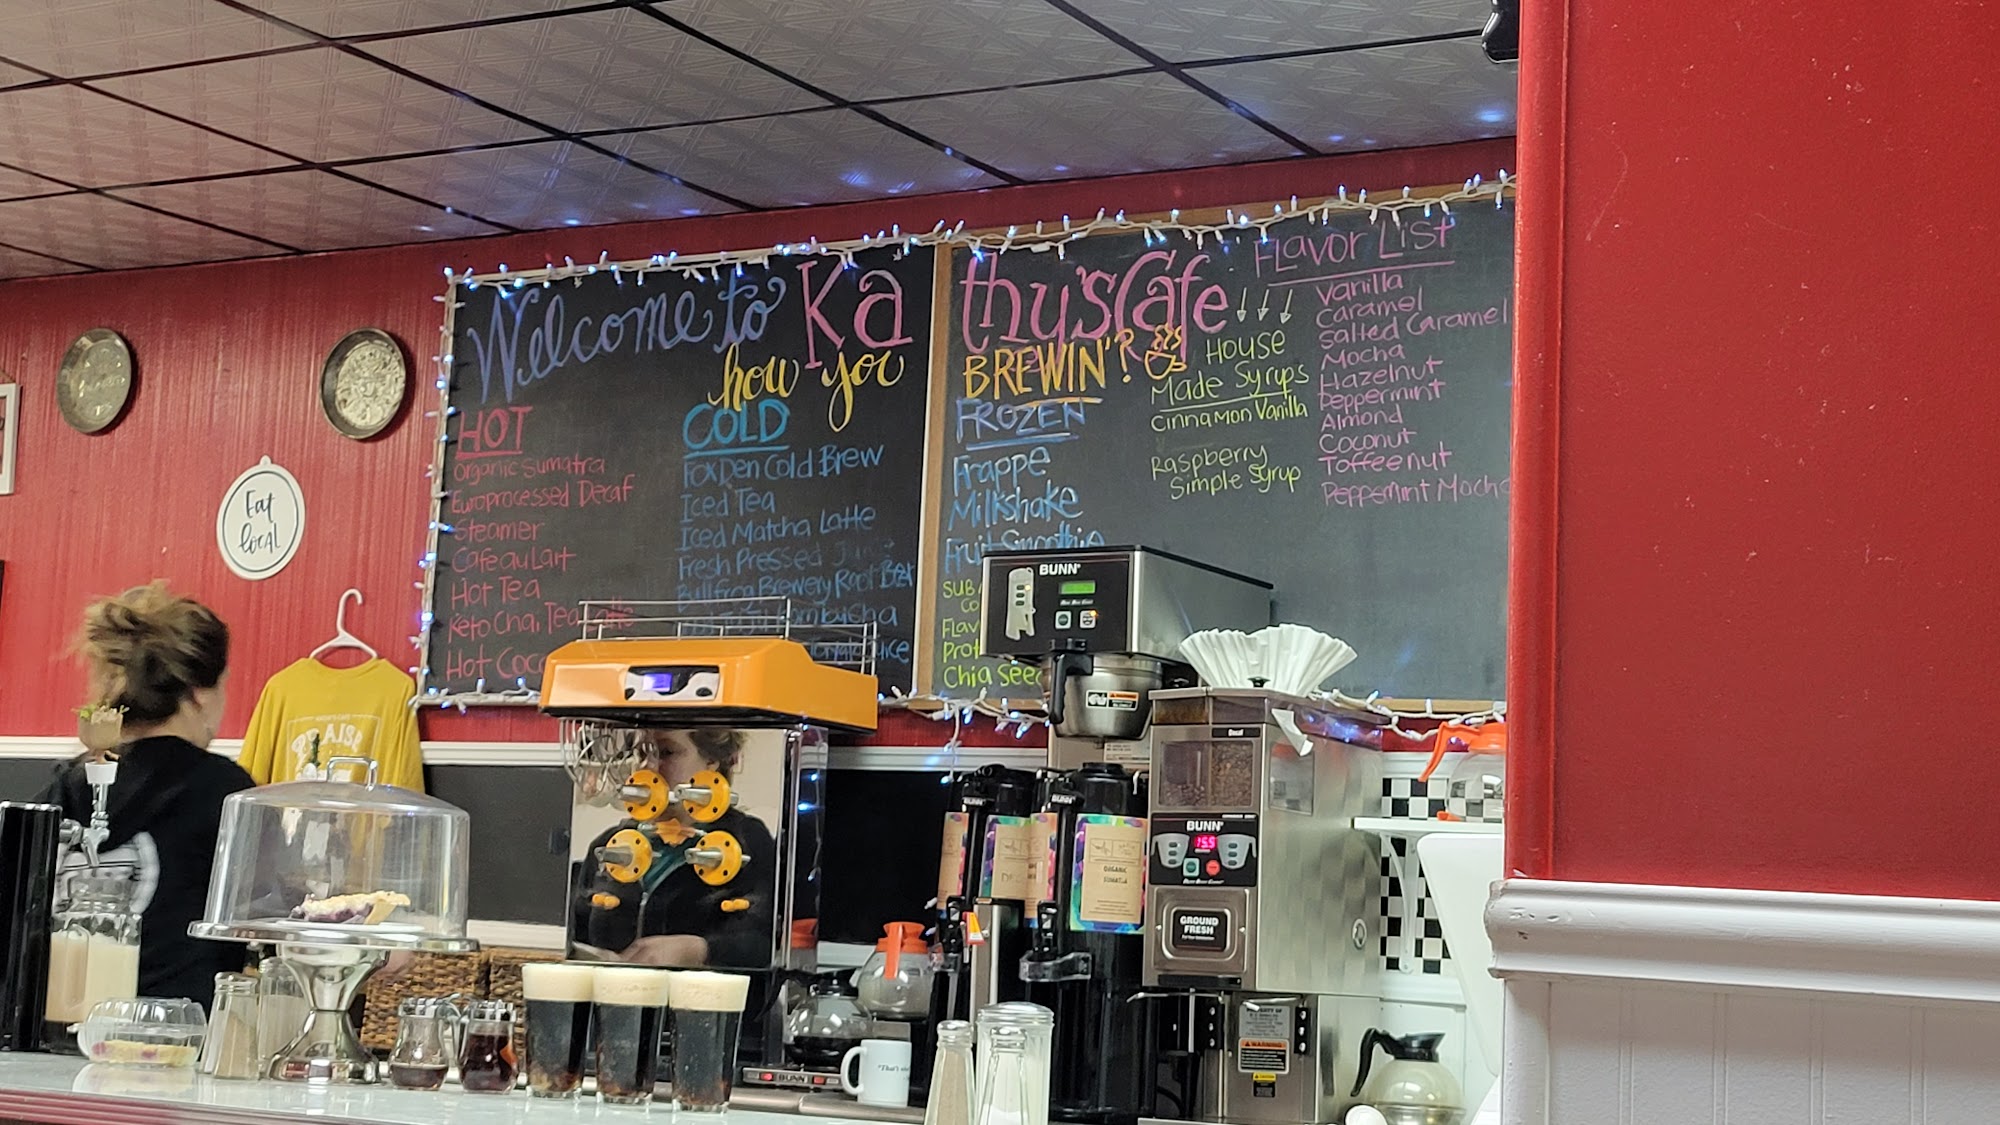 Welcome to Kathy's Cafe
how you BREWIN'?
HOT
Organic Sumatra
Europrocessed Decaf
Steamer
Cafe au Lait
Hot Tea
Keto Chai Tea Latte
Hot Coco
COLD
Fox Den Cold Brew
Iced Tea
Iced Matcha Latte
Fresh Pressed Juice
Bullfrog Brewery Root Beer
Kombucha
Tomato Juice
FROZEN
Frappe
Milkshake
Fruit Smoothie
SUB
Co
Flav
Prot
Chia Seed
HOUSE
Made Syrups
Cinnamon Vanilla
Raspberry
Simple Syrup
Flavor List
Vanilla
Caramel
Salted Caramel
Mocha
Hazelnut
Peppermint
Almond
Coconut
Toffeenut
Peppermint Mocha
Eat
local
PRAISE
BUNN
BUNN
BUNN
Decaf
BUNN
15.5
GROUND
FRESH
ORGANIC
SUMATRA
WARNING
BUNN
"That's